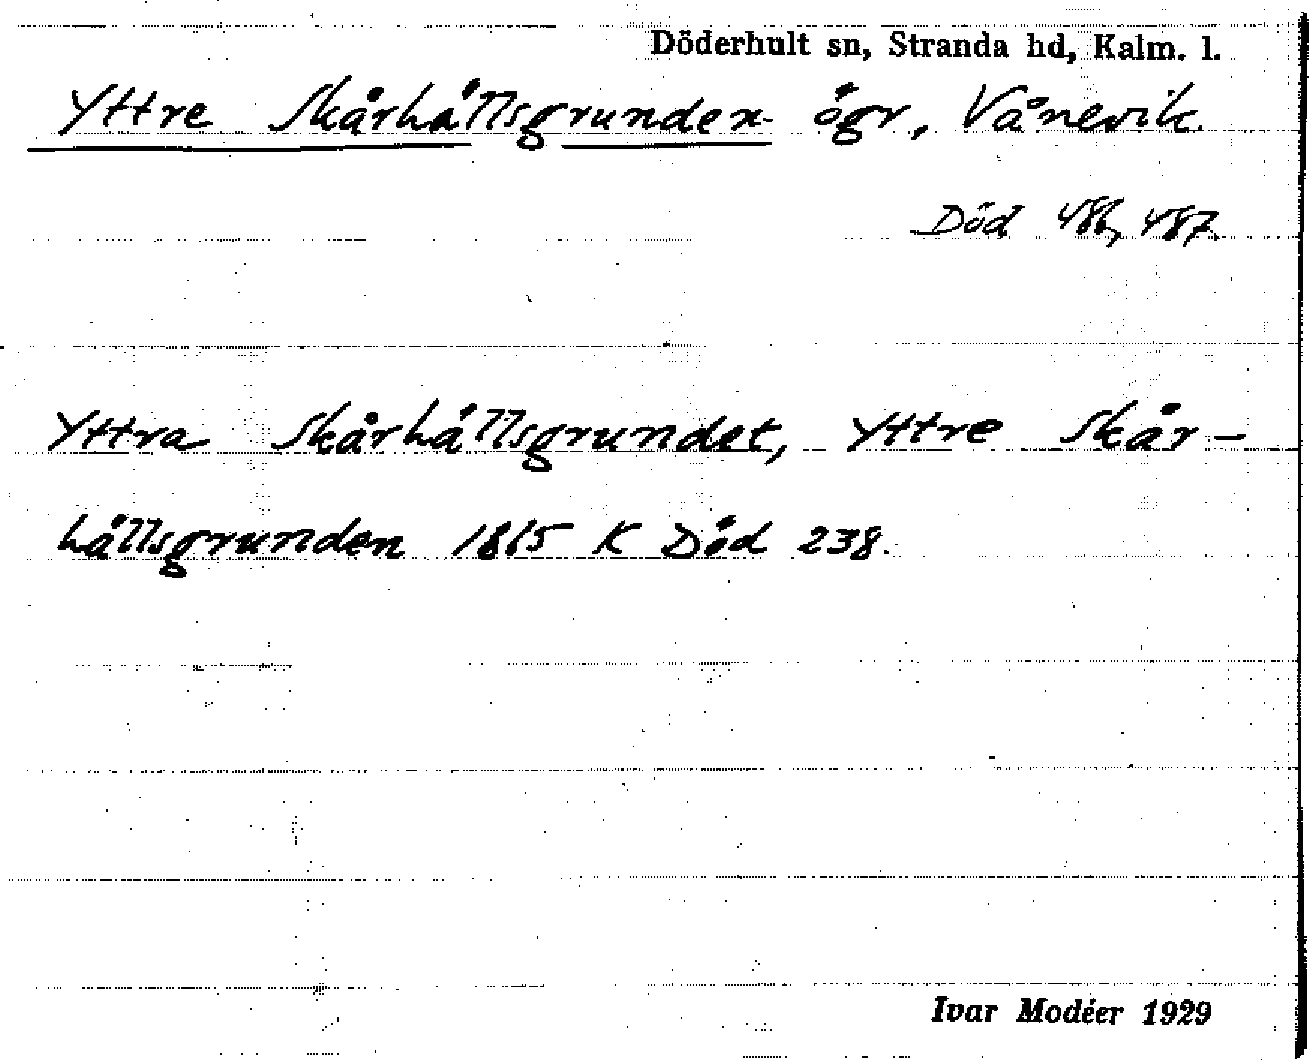 Döderhult sn, Stranda hd, Kalm. l.
Yttre Skårhållsgrunden ögr, Vånevik.
Död 486, 487.
Yttra Skårhållsgrundet, Yttre Skår-
hållsgrunden 1865 K Död 238.
Ivar Modéer 1929